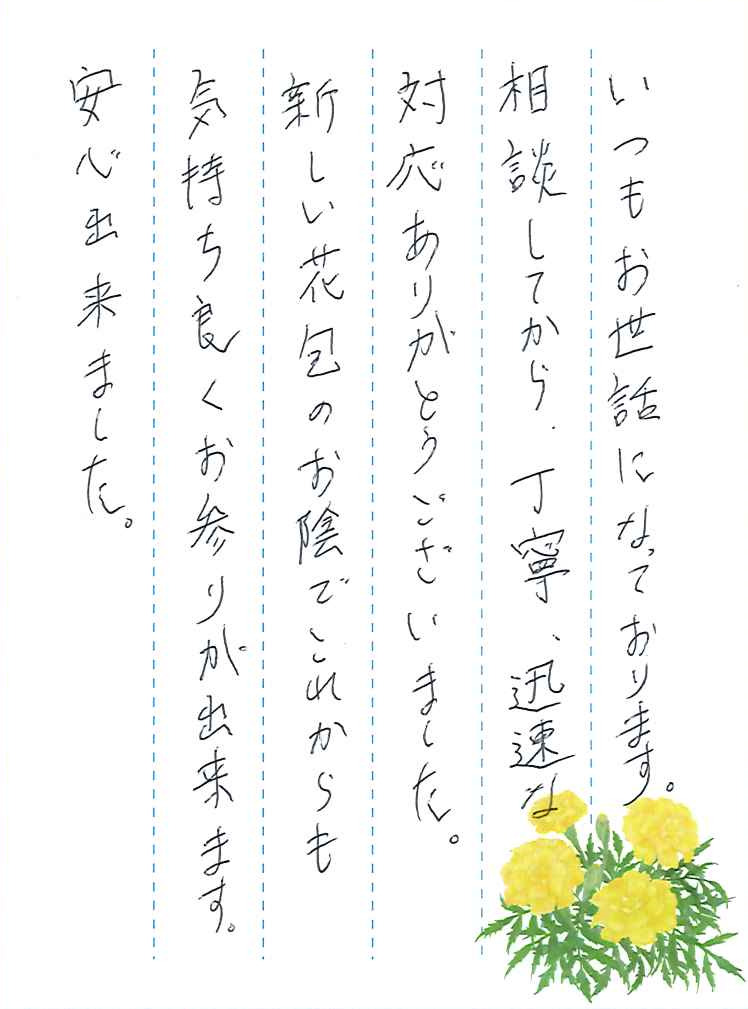 いつもお世話になっております。
相談してから、丁寧、迅速な
対応ありがとうございました。
新しい花包のお陰でこれからも
気持ち良くお参りが出来ます。
安心出来ました。